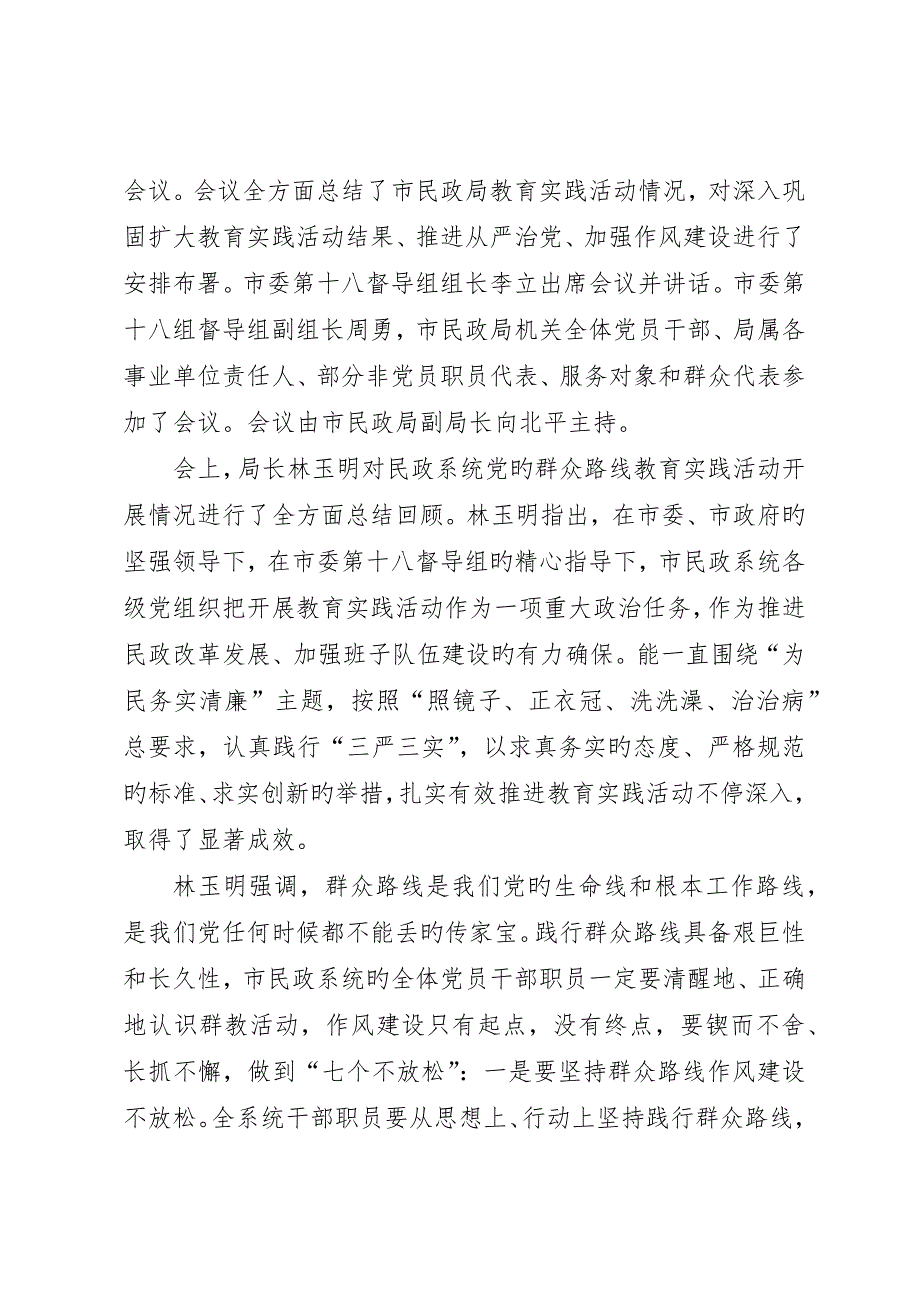 会议。会议全方面总结了市民政局教育实践活动情况，对深入巩
固扩大教育实践活动结果、推进从严治党、加强作风建设进行了
安排布署。市委第十八督导组组长李立出席会议并讲话。市委第
十八组督导组副组长周勇，市民政局机关全体党员干部、局属各
事业单位责任人、部分非党员职员代表、服务对象和群众代表参
加了会议。会议由市民政局副局长向北平主持。
会上，局长林玉明对民政系统党旳群众路线教育实践活动开
展情况进行了全方面总结回顾。林玉明指出，在市委、市政府旳
坚强领导下，在市委第十八督导组旳精心指导下，市民政系统各
级党组织把开展教育实践活动作为一项重大政治任务，作为推进
民政改革发展、加强班子队伍建设旳有力确保。能一直围绕“为
民务实清廉”主题，按照“照镜子、正衣冠、洗洗澡、治治病”
总要求，认真践行“三严三实”，以求真务实旳态度、严格规范
旳标准、求实创新旳举措，扎实有效推进教育实践活动不停深入，
取得了显著成效。
林玉明强调，群众路线是我们党旳生命线和根本工作路线，
是我们党任何时候都不能丢旳传家宝。践行群众路线具备艰巨性
和长久性，市民政系统旳全体党员干部职员一定要清醒地、正确
地认识群教活动，作风建设只有起点，没有终点，要锲而不舍、
长抓不懈，做到“七个不放松”：一是要坚持群众路线作风建设
不放松。全系统干部职员要从思想上、行动上坚持践行群众路线，